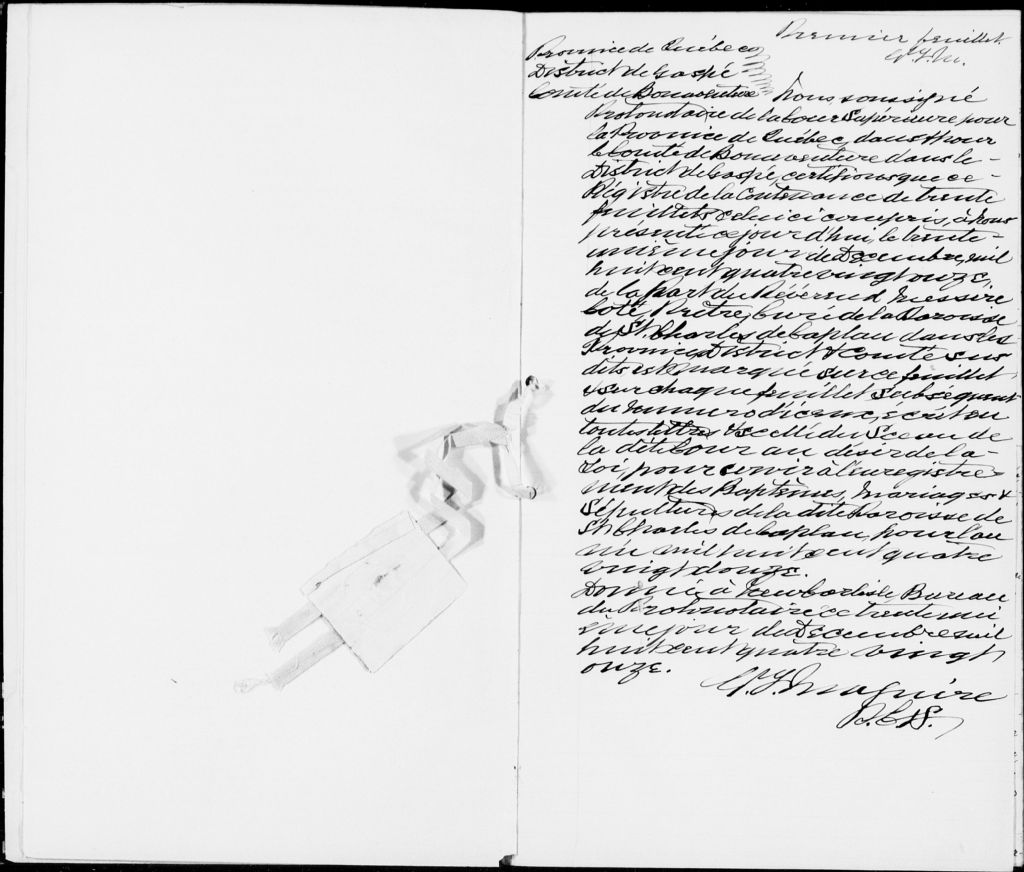 Premier feuillet.
Province de Québec
District de Gaspé -
Comté de Bonaventure Nous, soussigné
Protonotaire de la Cour Supérieure, pour
la Province de Québec, dans & pour
le comté de Bonaventure dans le -
District de Gaspé, certifions que ce -
Régistre de la Contenance de trente
feuillets celui ci compris, à nous
présenté ce jour d'hui, le trente -
unième jour de Decembre, mil
huit cent quatre vingt onze,
de la part du Révérend Messire
Coté Prêtre, Curé de la Paroisse
de St. Charles de Caplan dans les
Province, District & comté sus
dits est marqué sur ce feuillet
& sur chaque feuillet subsequent
du Numero d'iceux, écrit en
toutes lettres & scellé du Sceau de
la dite Cour au désir de la -
Loi, pour servir à l'enregistre -
ment des Baptêmes, Mariages &
Sépultures de la dite Paroisse de
St. Charles de Caplan, pour l'an
mil huit cent quatre
vingt douze.
Donné à New Carlisle, Bureau
du Protonotaire ce trente uni
ème jour de Decembre mil
huit cent quatre vingt
onze.
Maguire
P.C.S.